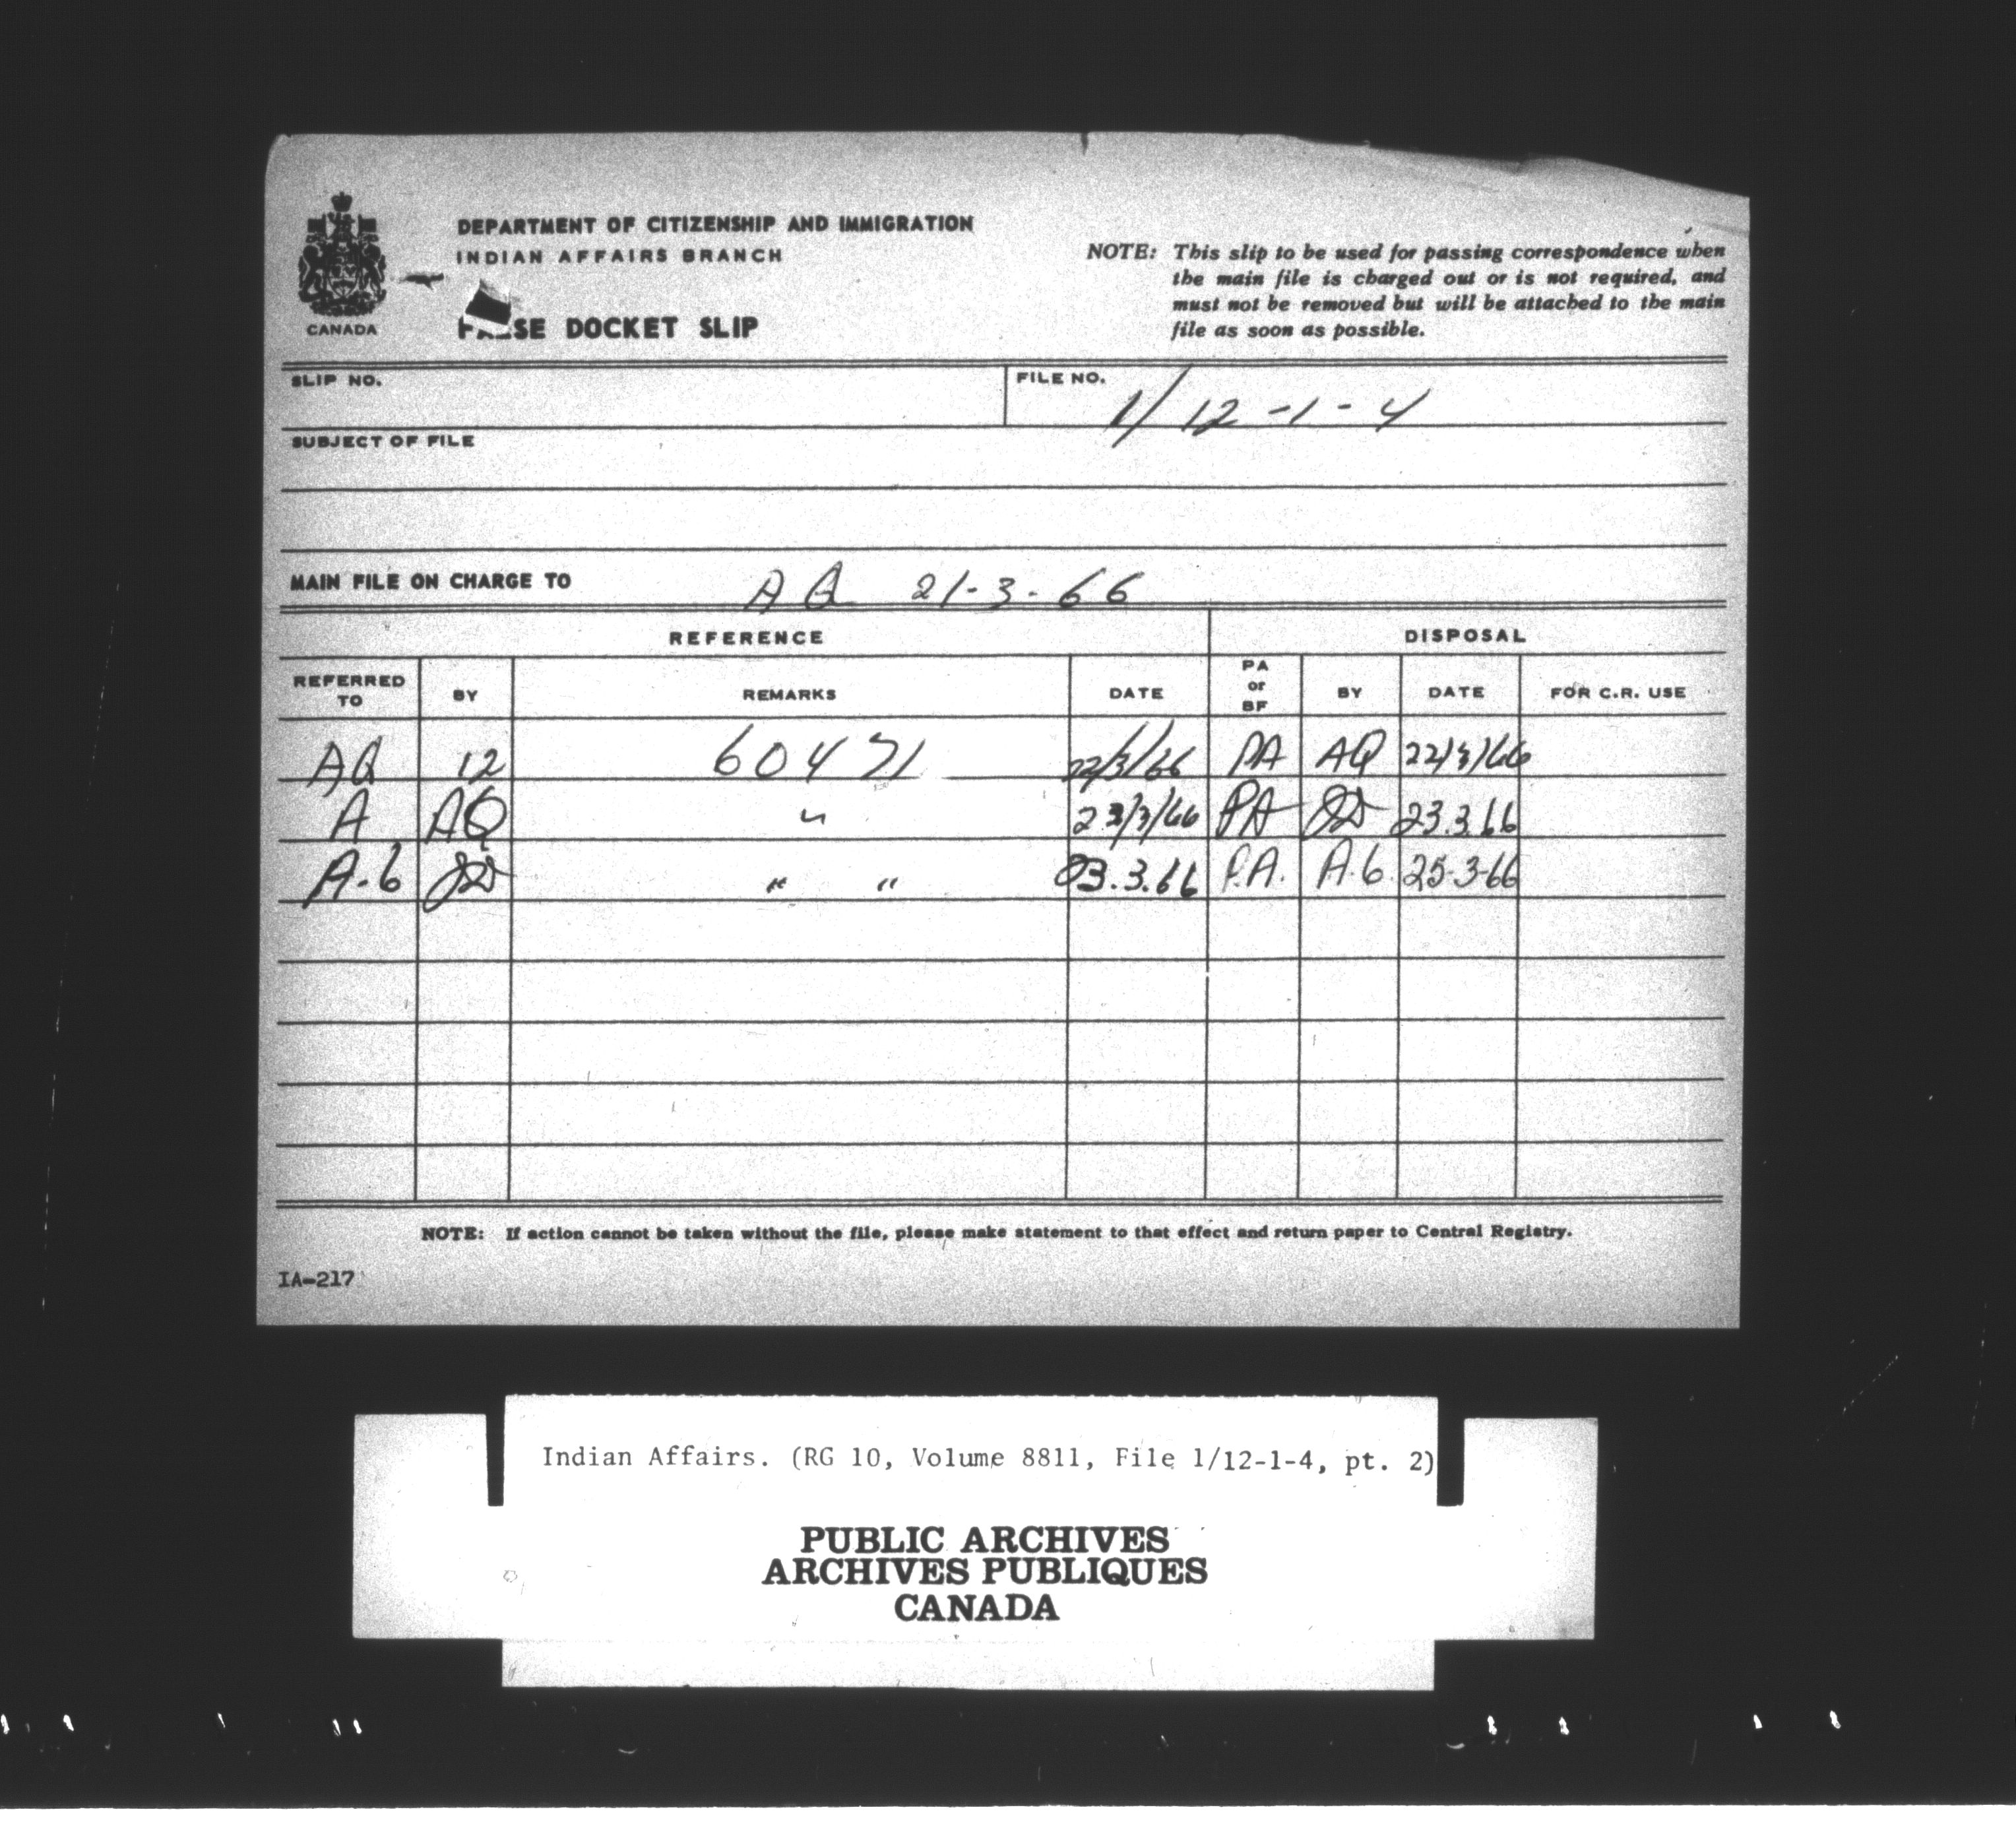 DEPARTMENT OF CITIZENSHIP AND IMMIGRATION
INDIAN AFFAIRS BRANCH
CANADA
FALSE DOCKET SLIP
NOTE: This slip to be used for passing correspondence when
the main file is charged out or is not required, and
must not be removed but will be attached to the main
file as soon as possible.
SLIP NO.
FILE NO. 1/12-1-4
SUBJECT OF FILE
MAIN FILE ON CHARGE TO AQ 21-3-66
REFERENCE DISPOSAL
REFERRED TO BY REMARKS DATE PA or BF BY DATE FOR C.R. USE
AQ 12 60471 22/3/66 PA AQ 22/3/66
A AQ " 23/3/66 PA 23.3.66
A.6 " " 23.3.66 P.A. A.6. 25-3-66
NOTE: If action cannot be taken without the file, please make statement to that effect and return paper to Central Registry.
IA-217
Indian Affairs. (RG 10, Volume 8811, File 1/12-1-4, pt. 2)
PUBLIC ARCHIVES
ARCHIVES PUBLIQUES
CANADA